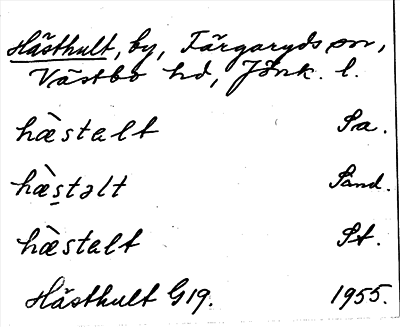 Hästhult, by, Färgaryds sn,
Västbo hd, Jönk. l.
hæ̀stalt Sa.
hæ̀ṣtəlt Sand.
hæ̀stalt St.
Hästhult G19. 1955.